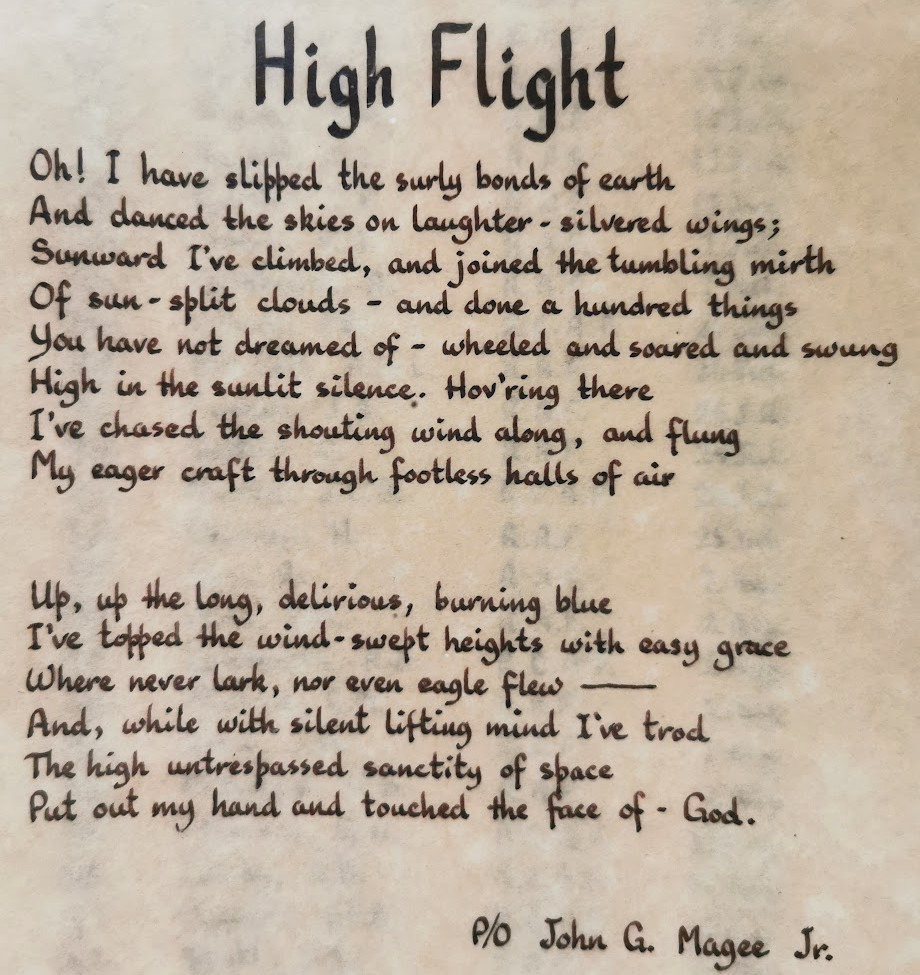 High Flight
Oh! I have slipped the surly bonds of earth
And danced the skies on laughter-silvered wings;
Sunward I've climbed, and joined the tumbling mirth
Of sun-split clouds - and done a hundred things
You have not dreamed of - wheeled and soared and swung
High in the sunlit silence. Hov'ring there
I've chased the shouting wind along, and flung
My eager craft through footless halls of air
Up, up the long, delirious, burning blue
I've topped the wind-swept heights with easy grace
Where never lark, nor even eagle flew —
And, while with silent lifting mind I've trod
The high untrespassed sanctity of space
Put out my hand and touched the face of - God.
P/O John G. Magee Jr.